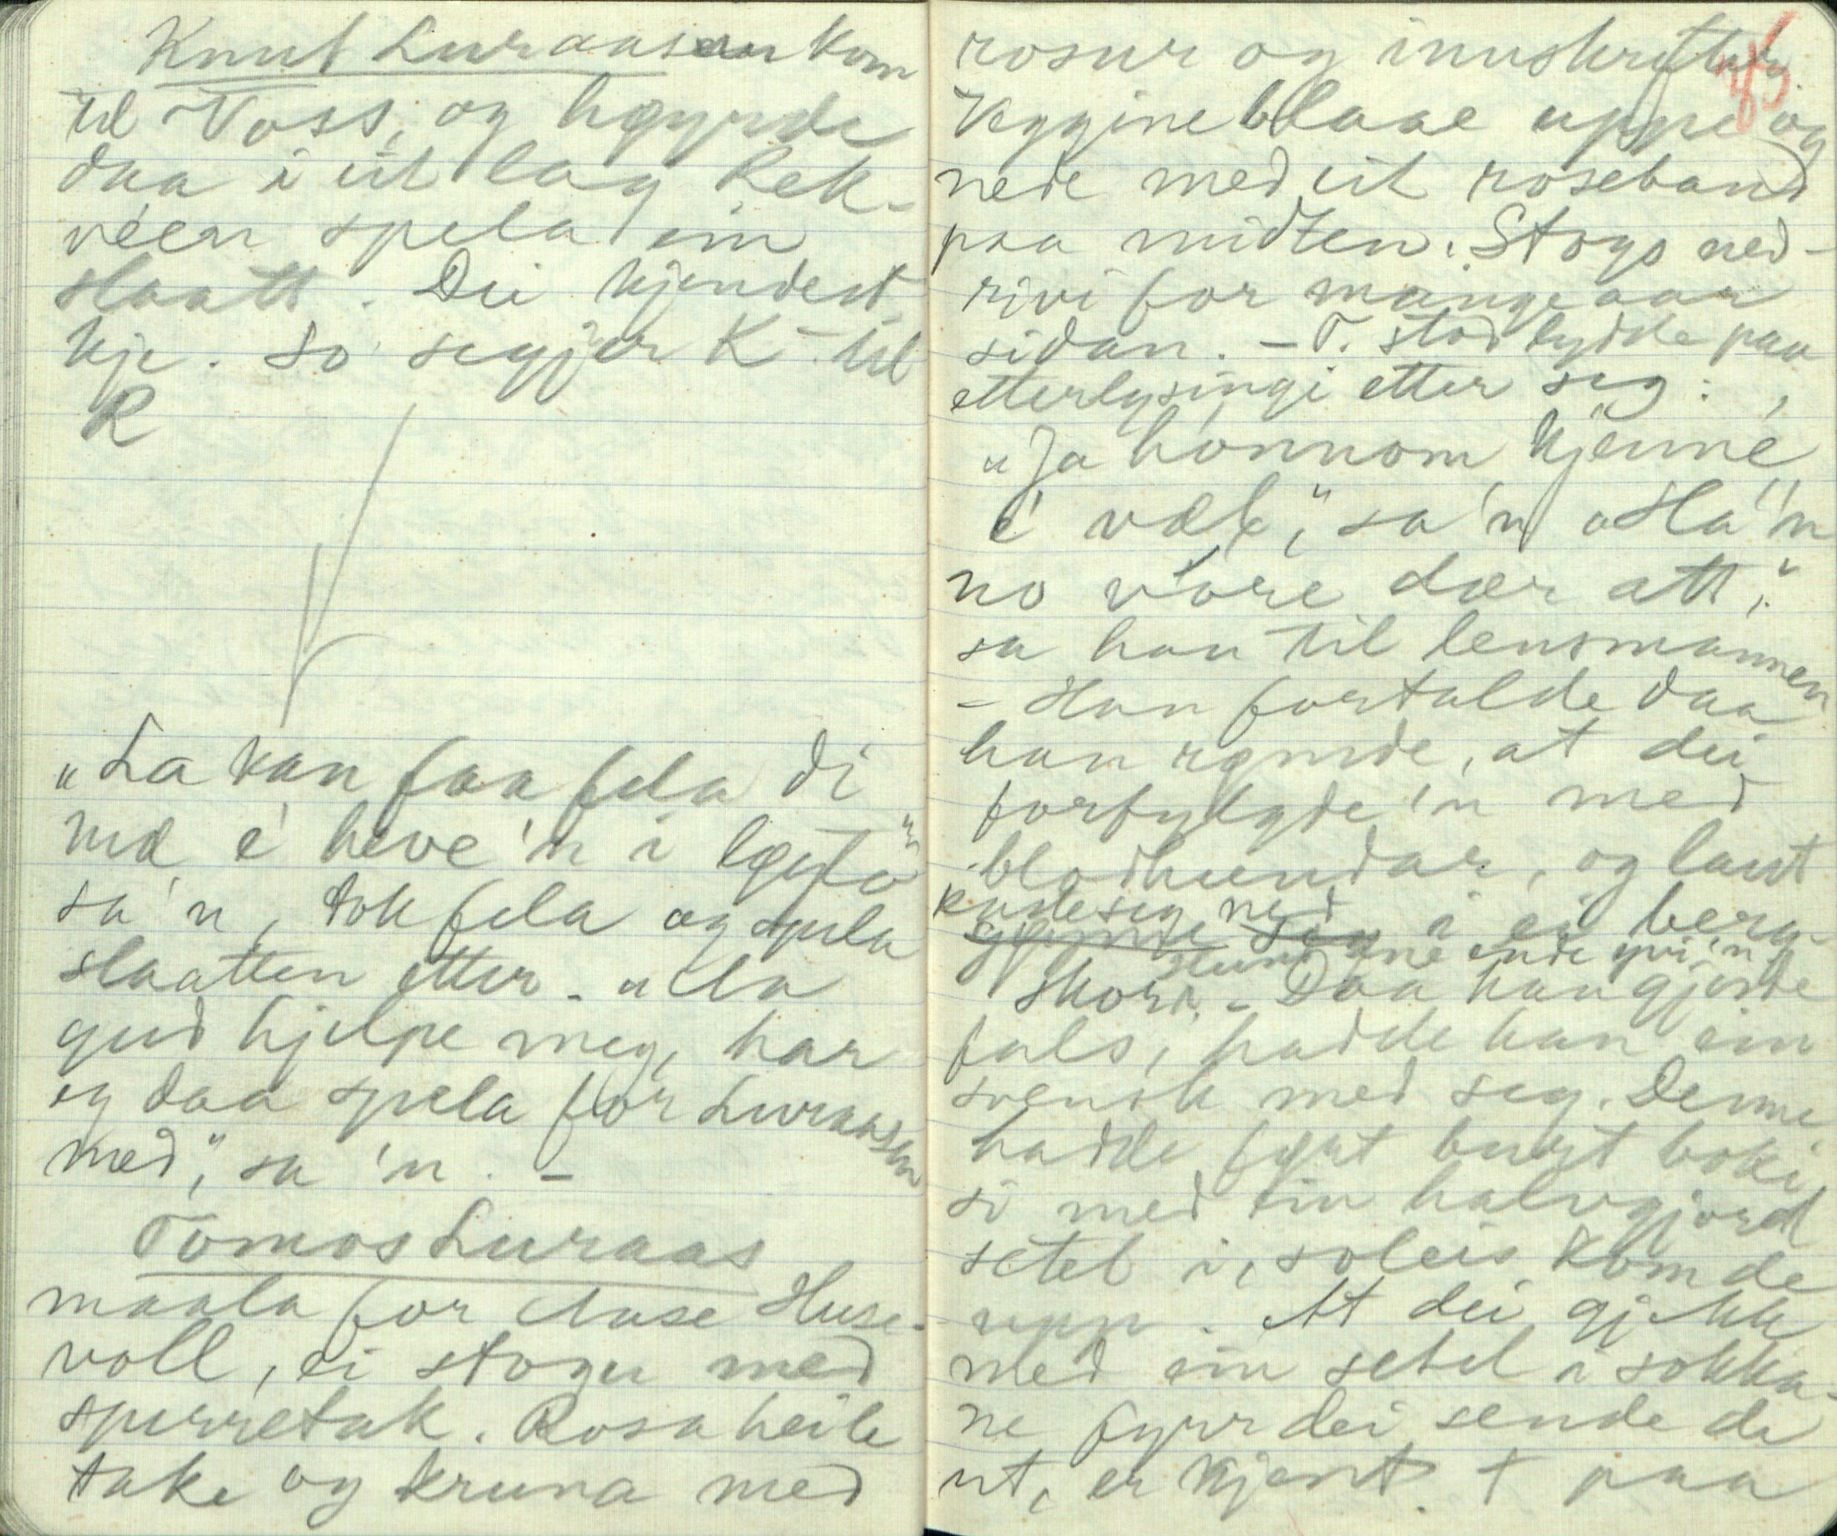 Knut Luraasen kom
til Voss, og høyrde
daa i eit lag Rek-
véen spela ein
slaatt. Dei kjendest
kje. So segjer K – til
R
"La kan faa fela di
næ e' heve 'n i
sa 'n, tok fela og spela
slaatten etter. "Aa
gud hjelpe meg, har
eg daa spela for Luraasen
med", sa 'n. –
Tomos Luraas
maala for Aase Huse-
voll, ei stogu med
sperretak. Rosa heile
take og kruna med
rosur og innskrifter.
Veggine blaae uppe og
nede med eit roseband
paa midten. Stogo ned-
rivi for mange aar
sidan. – T. stod lydde paa
etterlysingi etter seg:
"Ja honnom kjenne
e' væl", sa 'n "Ha 'n
no vore dær att",
sa han til lensmannen
– Han fortalde daa
han rømde, at dei
forfylgde 'n med
blodhundar, og laut
seg ned
i ei berg-
skore. – Daa han gjorde
fals, hadde han ein
svensk med seg. Denne
hadde ført burt boki
si med ein halvgjord
setel i, soleis kom de
upp. At dei gjekk
med ein setel i sokka-
ne fyrr dei sende de
ut, er kjent. T paa